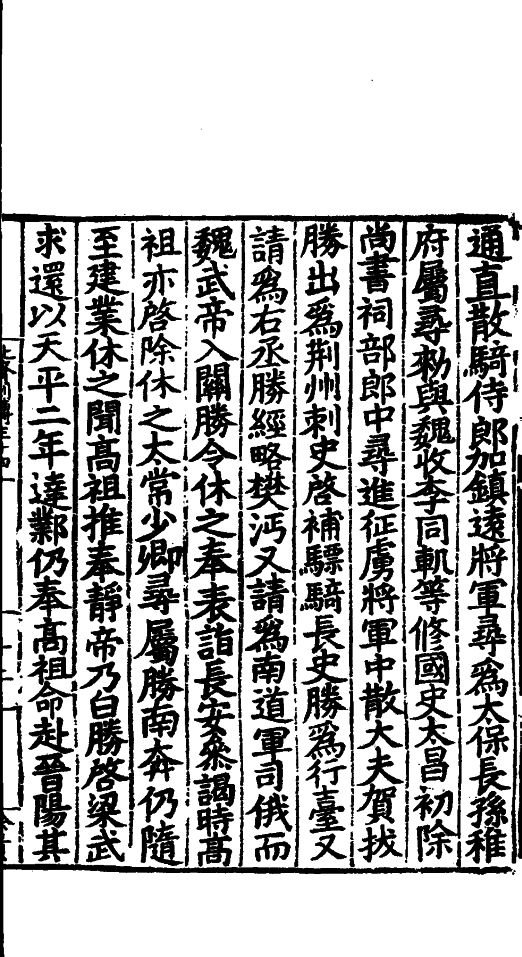 通直散騎侍郎加鎮遠將軍尋爲太保長孫稚
府屬尋勑與魏收李同軌等修國史太昌初除
尚書祠部郎中尋進征虜將軍中散大夫賀拔
勝出爲荆州刺史啓補驃騎長史勝爲行臺又
請爲右丞勝經略樊沔又請爲南道軍司俄而
魏武帝入關勝令休之奉表詣長安叅謁時髙
祖亦啓除休之太常少卿尋屬勝南奔仍隨
至建業休之聞髙祖推奉靜帝乃白勝啓梁武
求還以天平二年達鄴仍奉髙祖命赴晉陽其